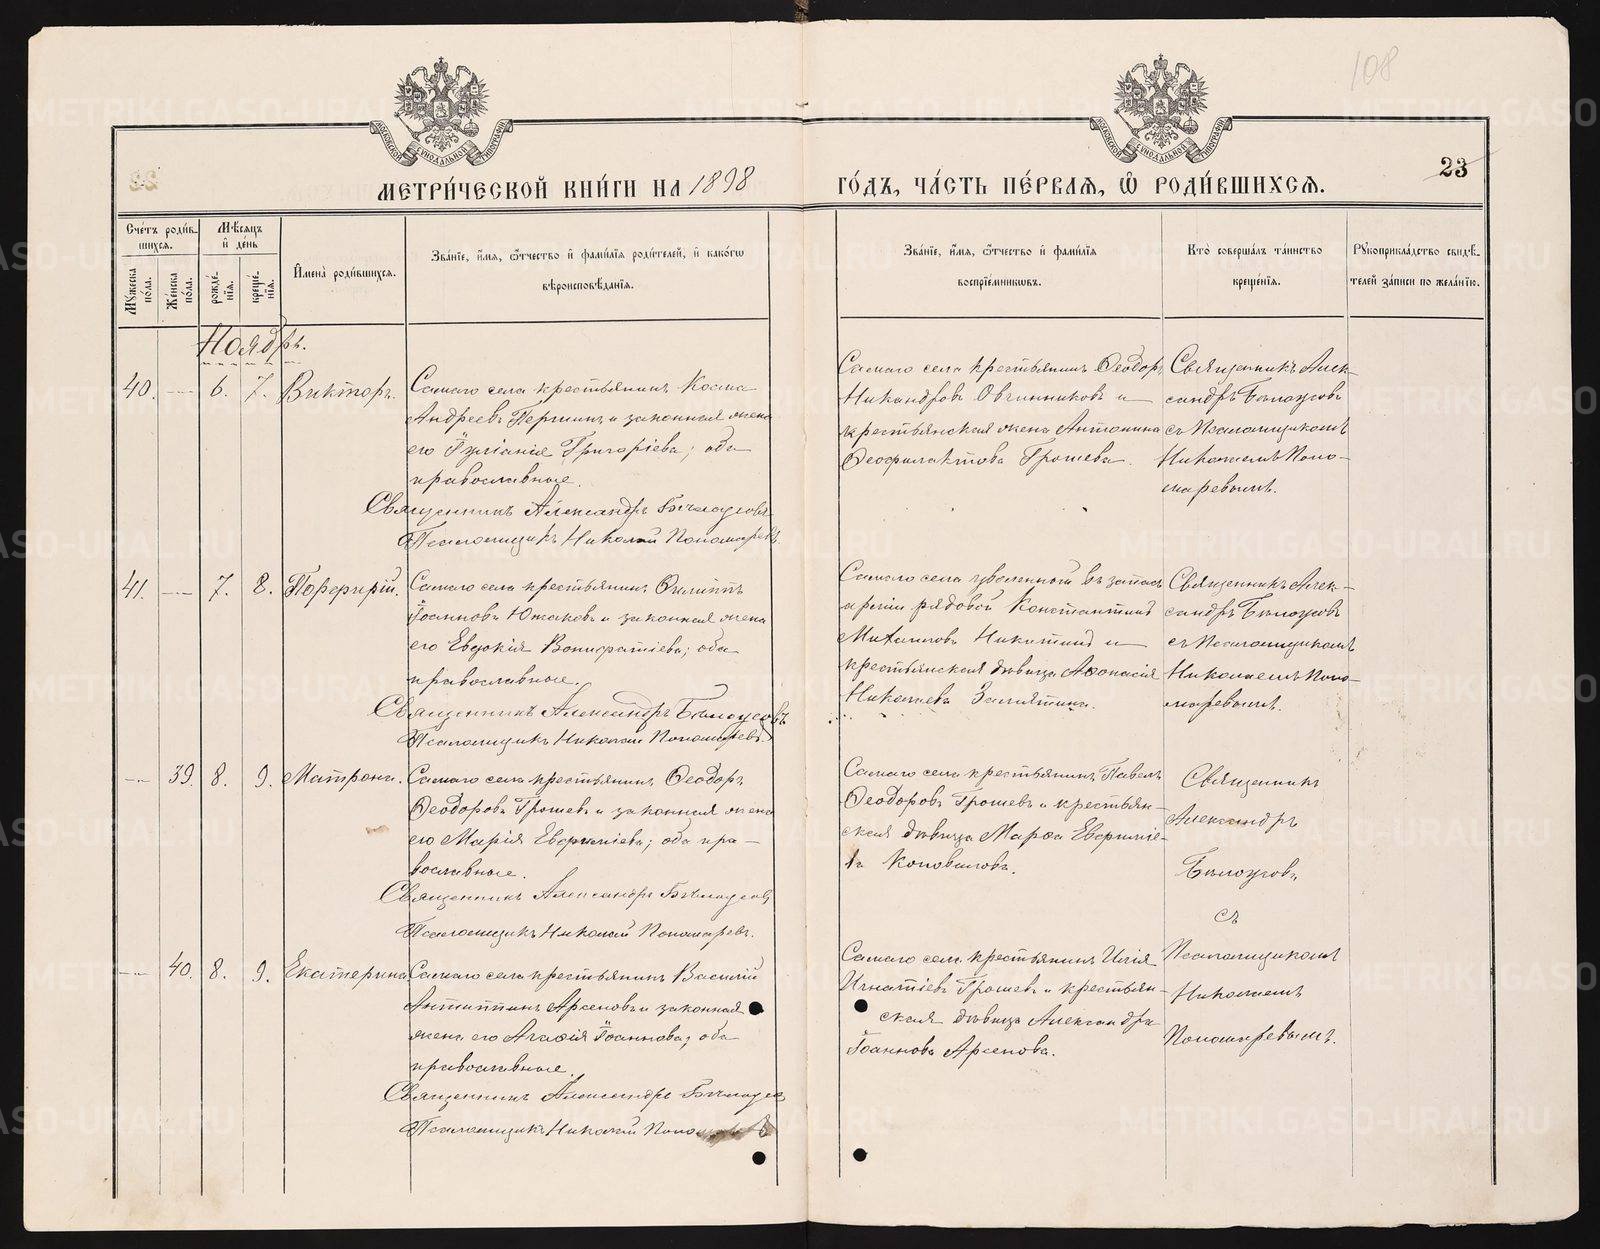 108
23
МЕТРИ́ЧЕСКОЙ КНИ́ГИ НА 1898
ГО́ДЪ, ЧА́СТЬ ПЕ́РВАѦ, Ѡ҆ РОДИ́ВШИХСѦ.
Сче́тъ роди́в-
шихсѧ.
Мꙋ́жеска по́ла.
Же́нска по́ла.
Мѣ́сѧцъ
и҆ де́нь
рожде́-
нїѧ.
креще́-
нїѧ.
И҆мена̀ роди́вшихсѧ.
Зва́нїе, и҆́мѧ, ѻ҆́тчество и҆ фами́лїѧ роди́телей, и҆ како́гѡ
вѣроисповѣ́данїѧ.
Зва́нїе, и҆́мѧ, ѻ҆́тчество и҆ фами́лїѧ
воспрїе́мникѡвъ.
Кто̀ соверша́лъ та́инство
креще́нїѧ.
Рꙋкоприкла́дство свидѣ́-
телей за́писи по жела́нїю.
Ноябрь.
40. 6. 7. Викторъ.
Самаго села крестьянинъ Косма
Андреевъ Першинъ и законная жена
его Іуліанія Григоріева; оба
православные.
Священникъ Александръ Бѣлоусовъ
Псаломщикъ Николай Пономаревъ.
Самаго села крестьянинъ Ѳеодоръ
Никандровъ Овчинниковъ и
крестьянская жена Антонина
Ѳеофилактова Грошева.
Священникъ Алек-
сандръ Бѣлоусовъ
съ Псаломщикомъ
Николаемъ Поно-
маревымъ.
41. 7. 8. Порфирій.
Самаго села крестьянинъ Филиппъ
Іоанновъ Южаковъ и законная жена
его Евдокія Вонифатіева; оба
православные.
Священникъ Александръ Бѣлоусовъ
Псаломщикъ Николай Пономаревъ.
Самаго села уволенный въ запасъ
арміи рядовой Константинъ
Михаиловъ Никитинъ и
крестьянская дѣвица Аѳанасія
Николаева Замятина.
Священникъ Алек-
сандръ Бѣлоусовъ
съ Псаломщикомъ
Николаемъ Поно-
маревымъ.
39. 8. 9. Матрона.
Самаго села крестьянинъ Ѳеодоръ
Ѳеодоровъ Грошевъ и законная жена
его Марія Евфиміева; оба пра-
вославные.
Священникъ Александръ Бѣлоусовъ
Псаломщикъ Николай Пономаревъ.
Самаго села крестьянинъ Павелъ
Ѳеодоровъ Грошевъ и крестьян-
ская дѣвица Марѳа Евфиміе-
ва Коновалова.
Священникъ
Александръ
Бѣлоусовъ
съ
Псаломщикомъ
Николаемъ
Пономаревымъ.
40. 8. 9. Екатерина
Самаго села крестьянинъ Василій
Антиппинъ Арсеновъ и законная
жена его Агафія Іоаннова; оба
православные.
Священникъ Александръ Бѣлоусов
Псаломщикъ Николай Пономаревъ
Самаго села крестьянинъ Илія
Игнатіевъ Грошевъ и крестьян-
ская дѣвица Александра
Іоаннова Арсенова.